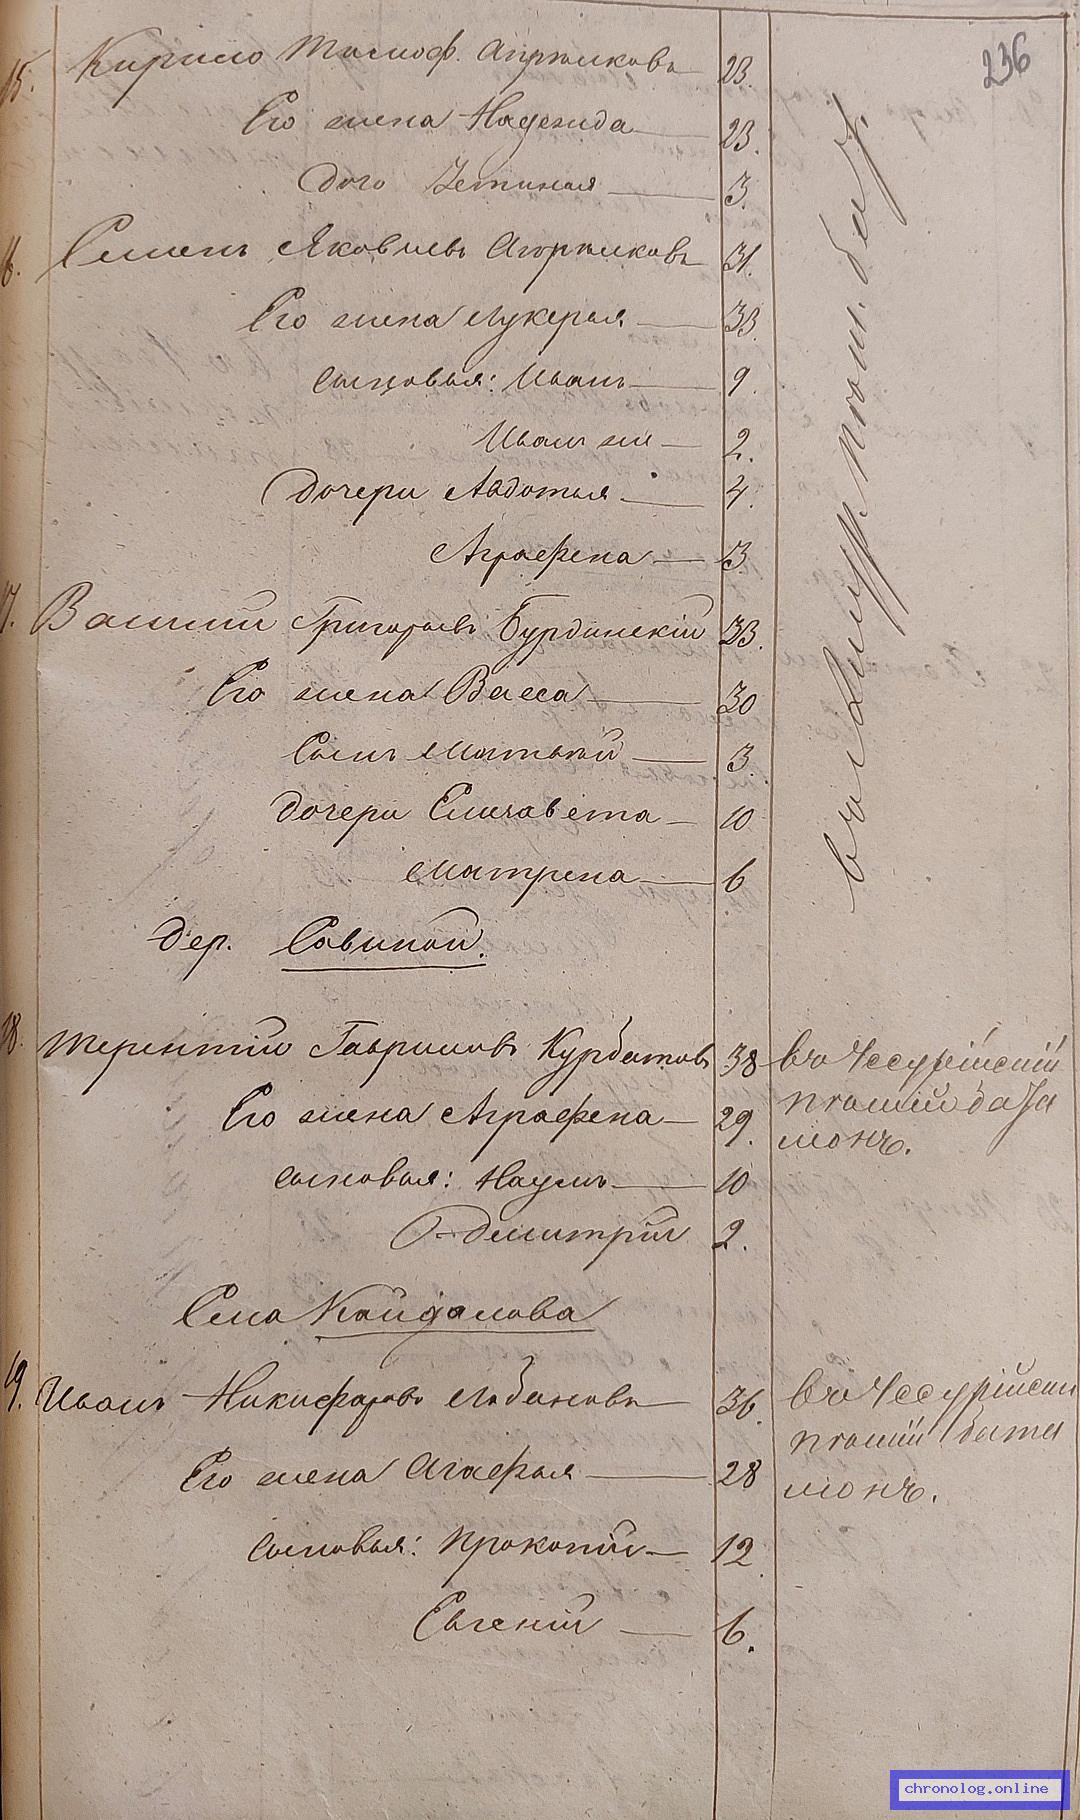 236
15. Кирило Тимоф. 23.
Его жена Надежда 23.
дочь 3.
16. Семенъ Яковлевъ 31.
Его жена Лукерья 33.
сыновья: Иванъ 9.
Иванъ же 2.
дочери Авдотья 4.
Аграфена 3
17. Василий Григорьевъ Бурдинскій 33.
Его жена Васса 30
Сынъ Матвѣй 3.
дочери Елизавета 10
Матрена 6
во Владимир. бат.
дер. Савиной.
18. Терентій Гавриловъ Курбатовъ 38
Его жена Аграфена 29.
сыновья: Наумъ 10
Димитрій 2.
во Уссурійскій
пѣшій батал
іонъ.
Село Кайдалова
19. Иванъ Никифоровъ Лобановъ 36.
Его жена Агафья 28
Сыновья: Прокопій 12
Евгеній 6.
во Уссурійскій
пѣшій батал
іонъ.
chronolog.online